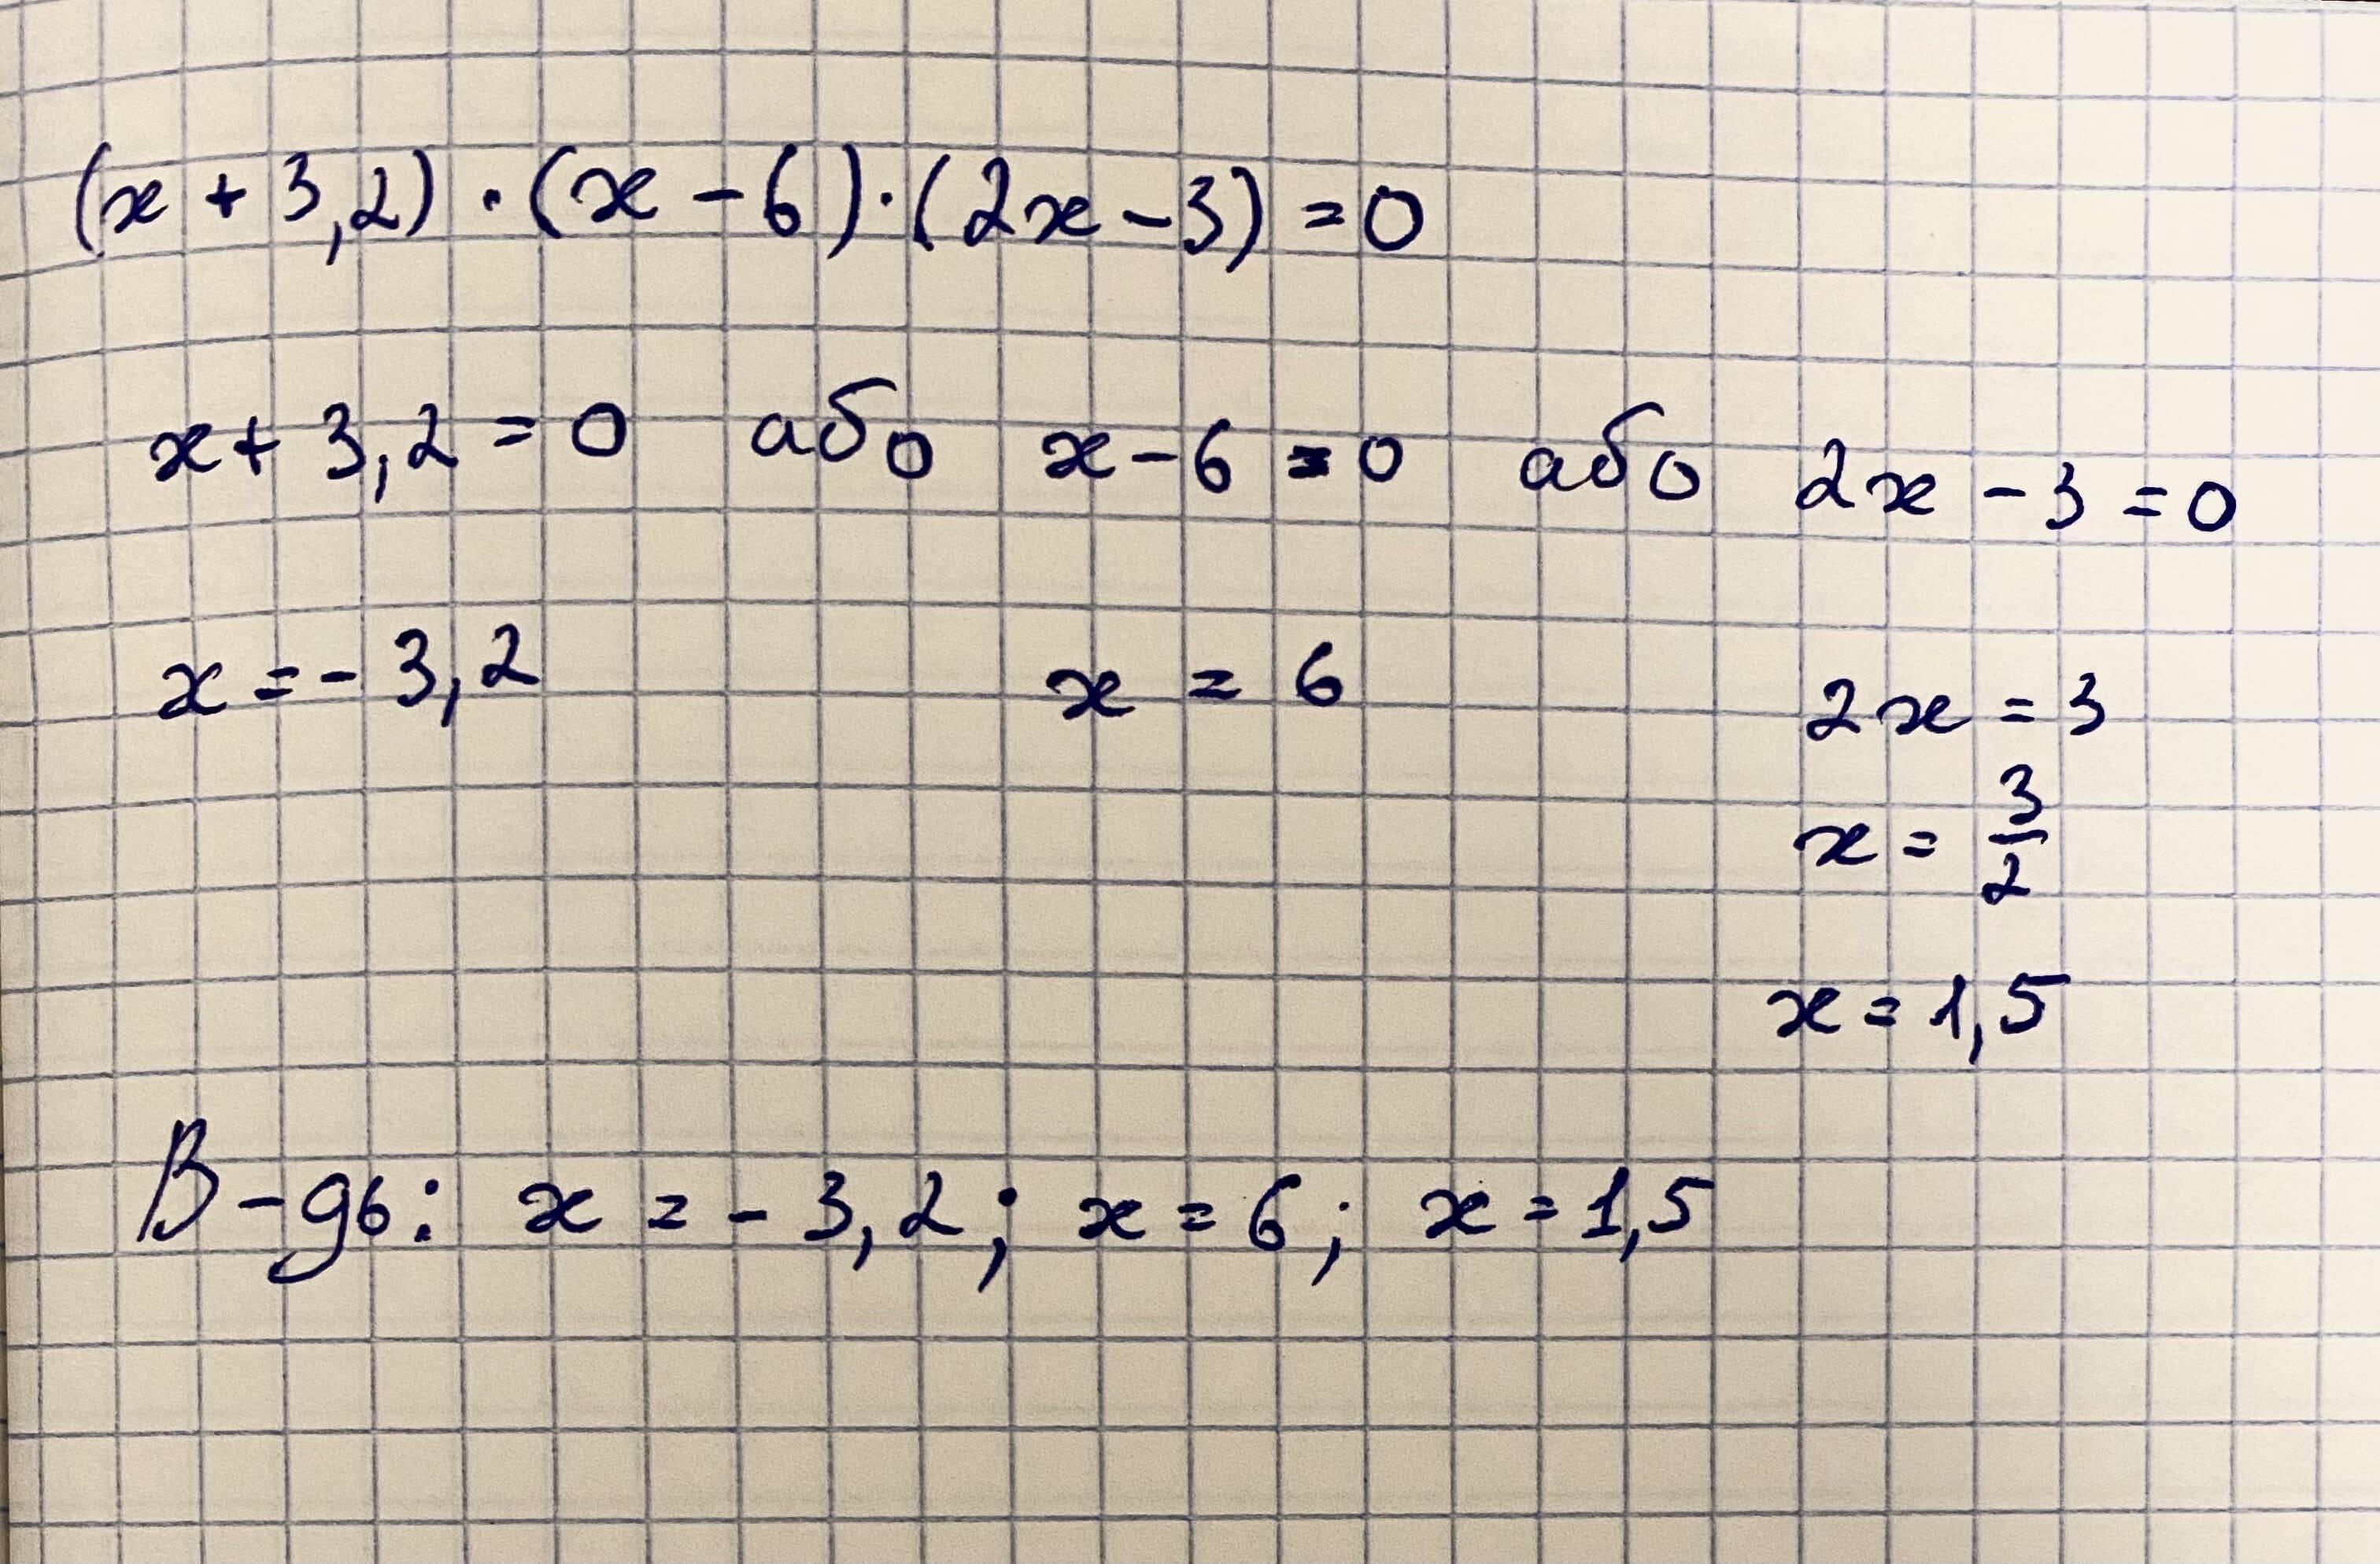 (x + 3,2) · (x - 6) · (2x - 3) = 0
x + 3,2 = 0 або x - 6 = 0 або 2x - 3 = 0
x = - 3,2 x = 6 2x = 3
x = 3/2
x = 1,5
В-дь: x = - 3,2; x = 6; x = 1,5